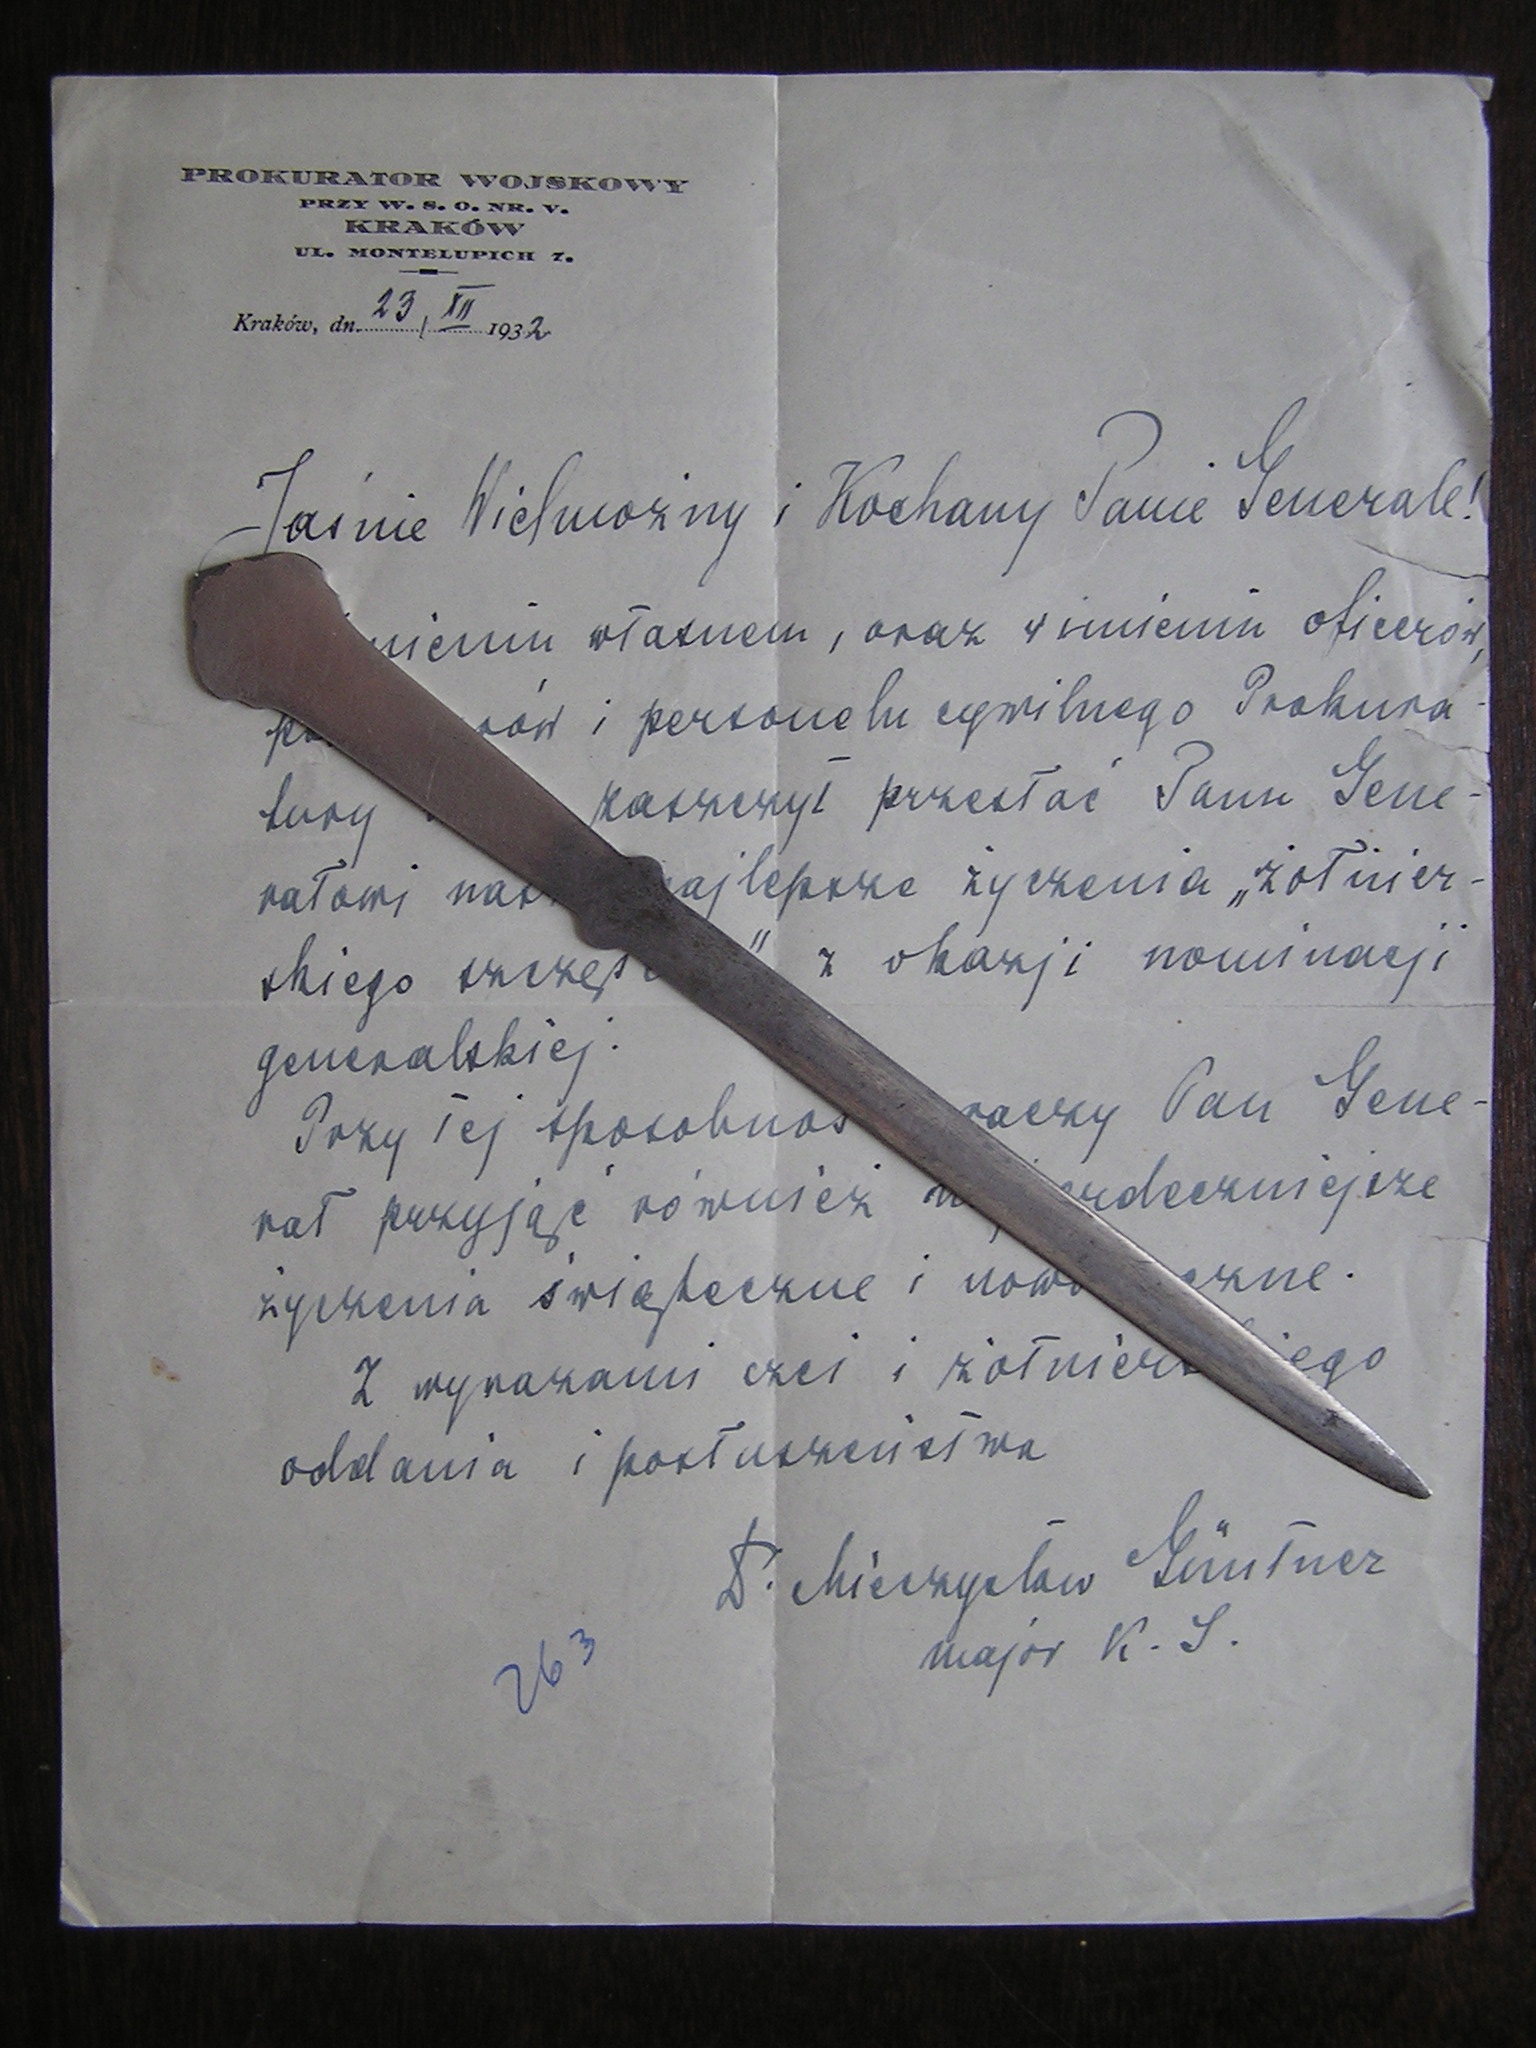 PROKURATOR WOJSKOWY
PRZY W. S. O. NR. V.
KRAKÓW
UL. MONTELUPICH 7.
Kraków, dn. 23/XII 1932
Jaśnie Wielmożny i Kochany Panie Generale!
własnem, oraz w imieniu oficerów,
i personelu cywilnego Prokura-
tury zaszczyt przesłać Panu Gene-
rałowi najlepsze życzenia „żołnier-
skiego " z okazji nominacji
generalskiej.
Przy tej raczy Pan Gene-
rał przyjąć również
życzenia świąteczne i
Z wyrazami czci i
oddania i posłuszeństwa
Dr. Mieczysław Güntner
major K. S.
263